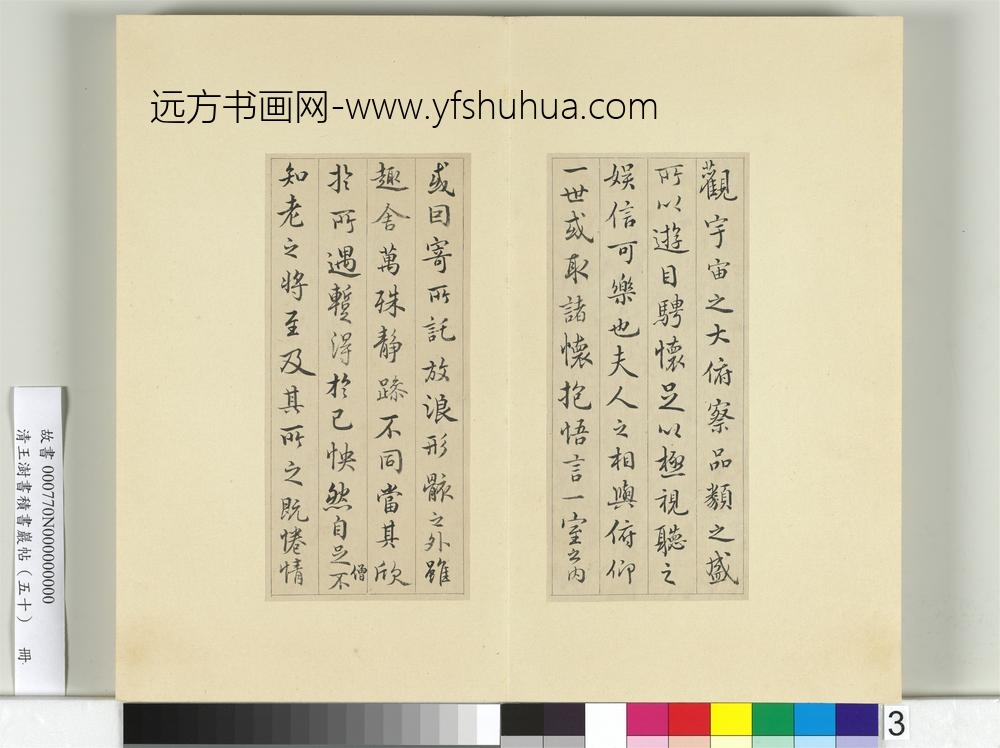 远方书画网-www.yfshuhua.com
觀宇宙之大俯察品類之盛
所以遊目騁懷足以極視聽之
娱信可樂也夫人之相與俯仰
一世或取諸懷抱悟言一室之內
或因寄所託放浪形骸之外雖
趣舍萬殊静躁不同當其欣
於所遇暫得於己怏然自足不
僧
知老之将至及其所之既惓情
故書 000770N000000000
清王澍書積書巖帖（五十） 冊
3